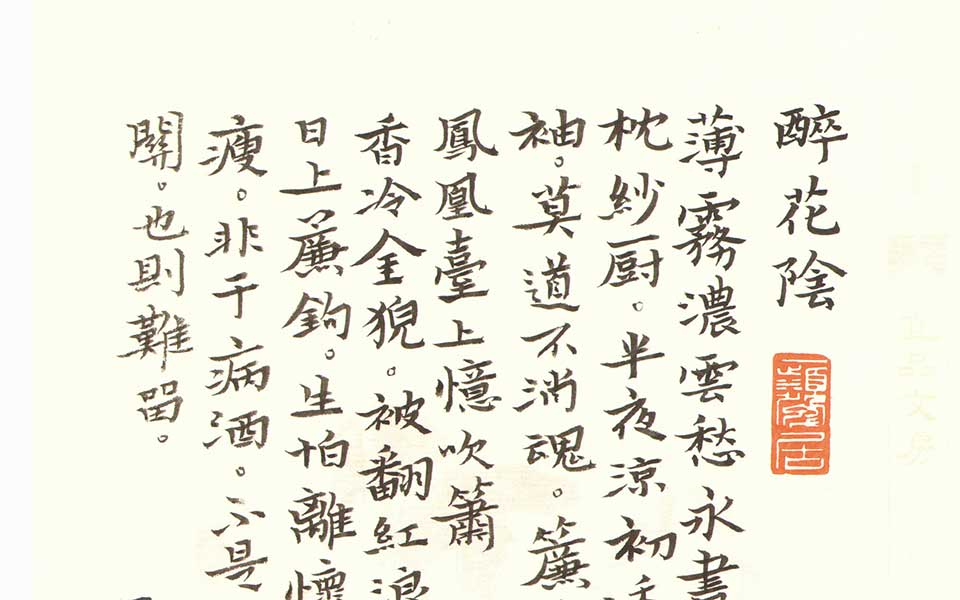 醉花陰
薄霧濃雲愁永晝
枕紗厨。半夜涼初
袖。莫道不消魂。簾
鳳凰臺上憶吹簫
香冷金猊。被翻紅浪
日上簾鉤。生怕離懷
瘦。非干病酒。不是
關。也則難留。